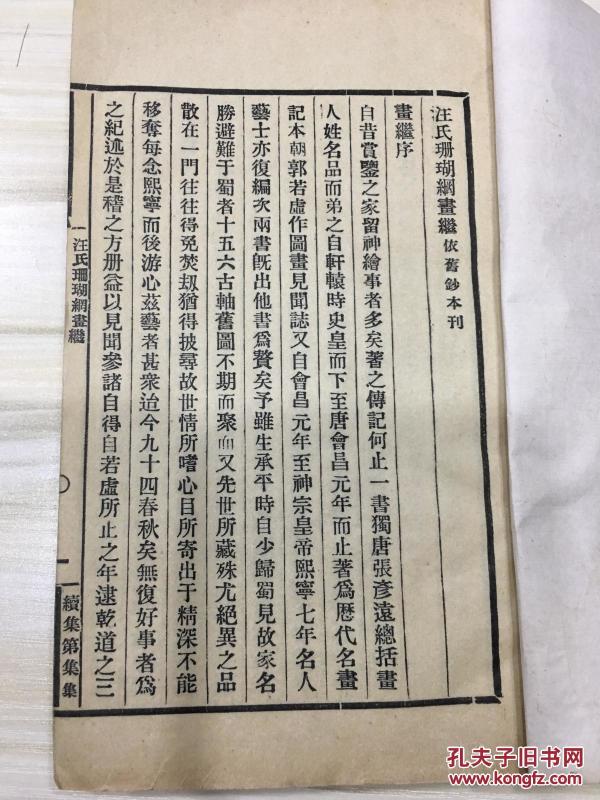 汪氏珊瑚網畫繼 依舊鈔本刊
畫繼序
自昔賞鑒之家留神繪事者多矣著之傳記何止一書獨唐張彥遠總括畫
人姓名品而第之自軒轅時史皇而下至唐會昌元年而止著爲歷代名畫
記本朝郭若虛作圖畫見聞誌又自會昌元年至神宗皇帝熙寧七年名人
藝士亦復編次兩書既出他書爲贅矣予雖生承平時自少歸蜀見故家名
勝避難于蜀者十五六古軸舊圖不期而聚而又先世所藏殊尤絕異之品
散在一門往往得免焚劫猶得披尋故世情所嗜心目所寄出于精深不能
移奪每念熙寧而後游心茲藝者甚衆迨今九十四春秋矣無復好事者爲
之紀述於是稽之方册益以見聞參諸自得自若虛所止之年逮乾道之三
汪氏珊瑚網畫繼
一
續集第集集
孔夫子旧书网
www.kongfz.com